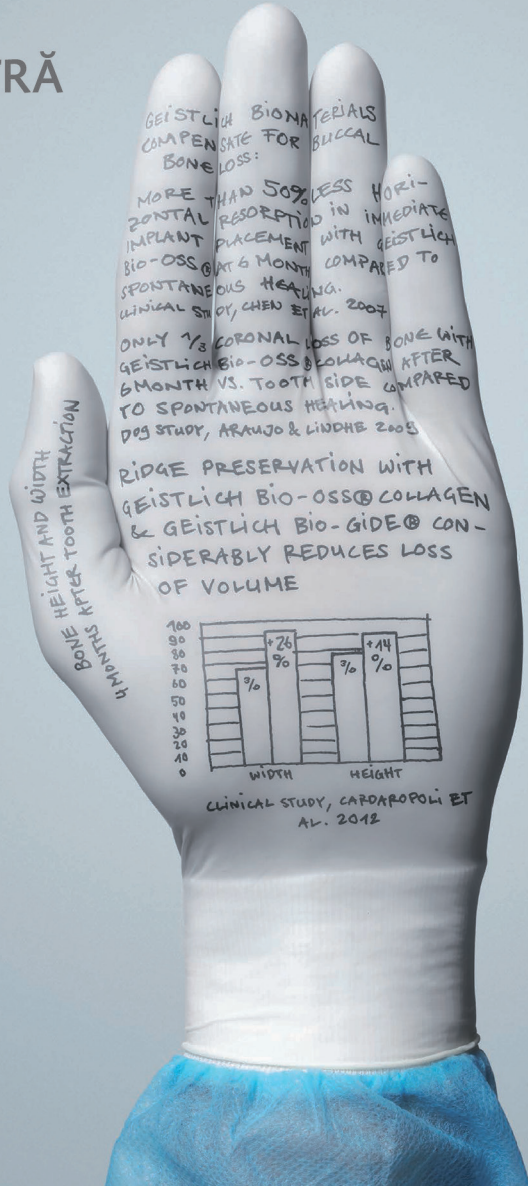 TRĂ
GEISTLICH BIOMATERIALS
COMPENSATE FOR BUCCAL
BONE LOSS:
MORE THAN 50% LESS HORI-
ZONTAL RESORPTION IN IMMEDIATE
IMPLANT PLACEMENT WITH GEISTLICH
BIO-OSS® AT 6 MONTH COMPARED TO
SPONTANEOUS HEALING.
CLINICAL STUDY, CHEN ET AL. 2007
ONLY 1/3 CORONAL LOSS OF BONE WITH
GEISTLICH BIO-OSS® COLLAGEN AFTER
6 MONTH VS. TOOTH SIDE COMPARED
TO SPONTANEOUS HEALING.
DOG STUDY, ARAUJO & LINDHE 2009
RIDGE PRESERVATION WITH
GEISTLICH BIO-OSS® COLLAGEN
& GEISTLICH BIO-GIDE® CON-
SIDERABLY REDUCES LOSS
OF VOLUME
BONE HEIGHT AND WIDTH
4 MONTHS AFTER TOOTH EXTRACTION
100
90
80
70
60
50
40
30
20
10
0
%
+26
%
%
+14
%
WIDTH HEIGHT
CLINICAL STUDY, CARDAROPOLI ET
AL. 2012